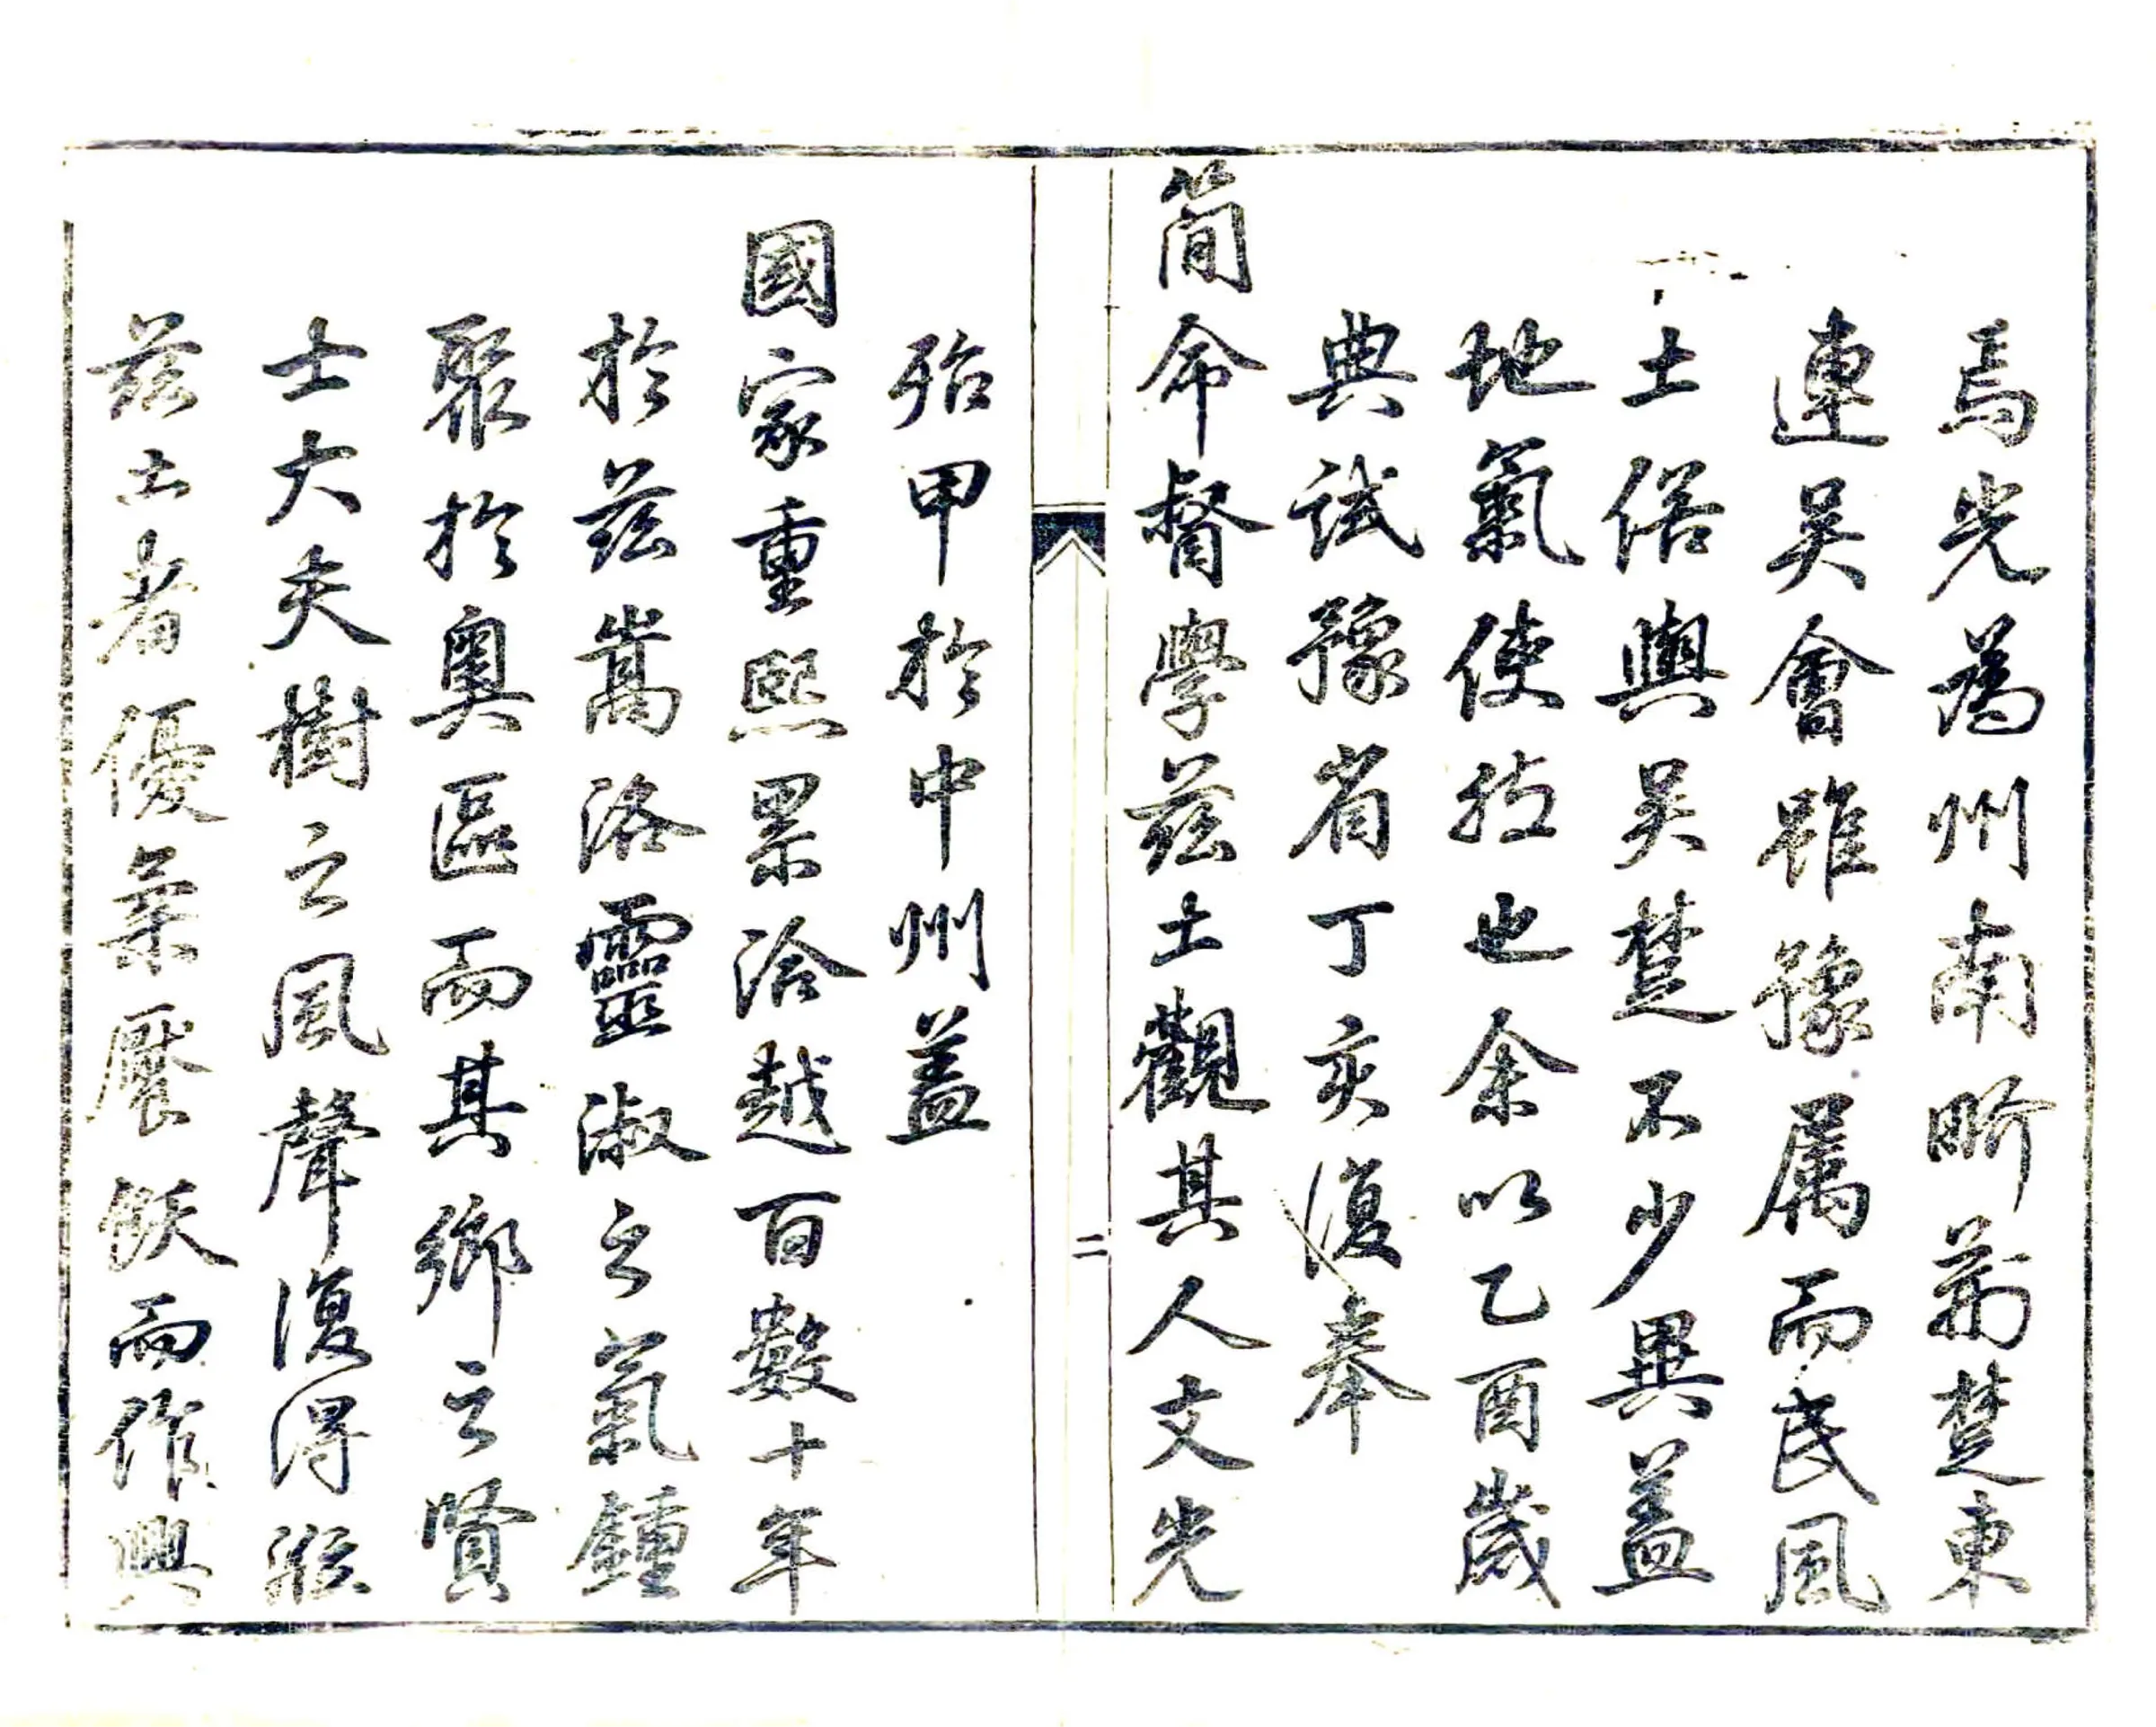 焉光為州南畍荊楚東
連吳會雖豫属而民風
土俗與吳楚不少異蓋
地氣使然也余以乙酉歲
典試豫省丁亥復奉
簡命督學茲土觀其人文光
二
殆甲於中州蓋
國家重熙累洽越百數十年
於茲嵩洛靈淑之氣鍾
聚於奧區而其鄉之賢
士大夫樹之風聲復得
茲土者優柔饜飫而作興